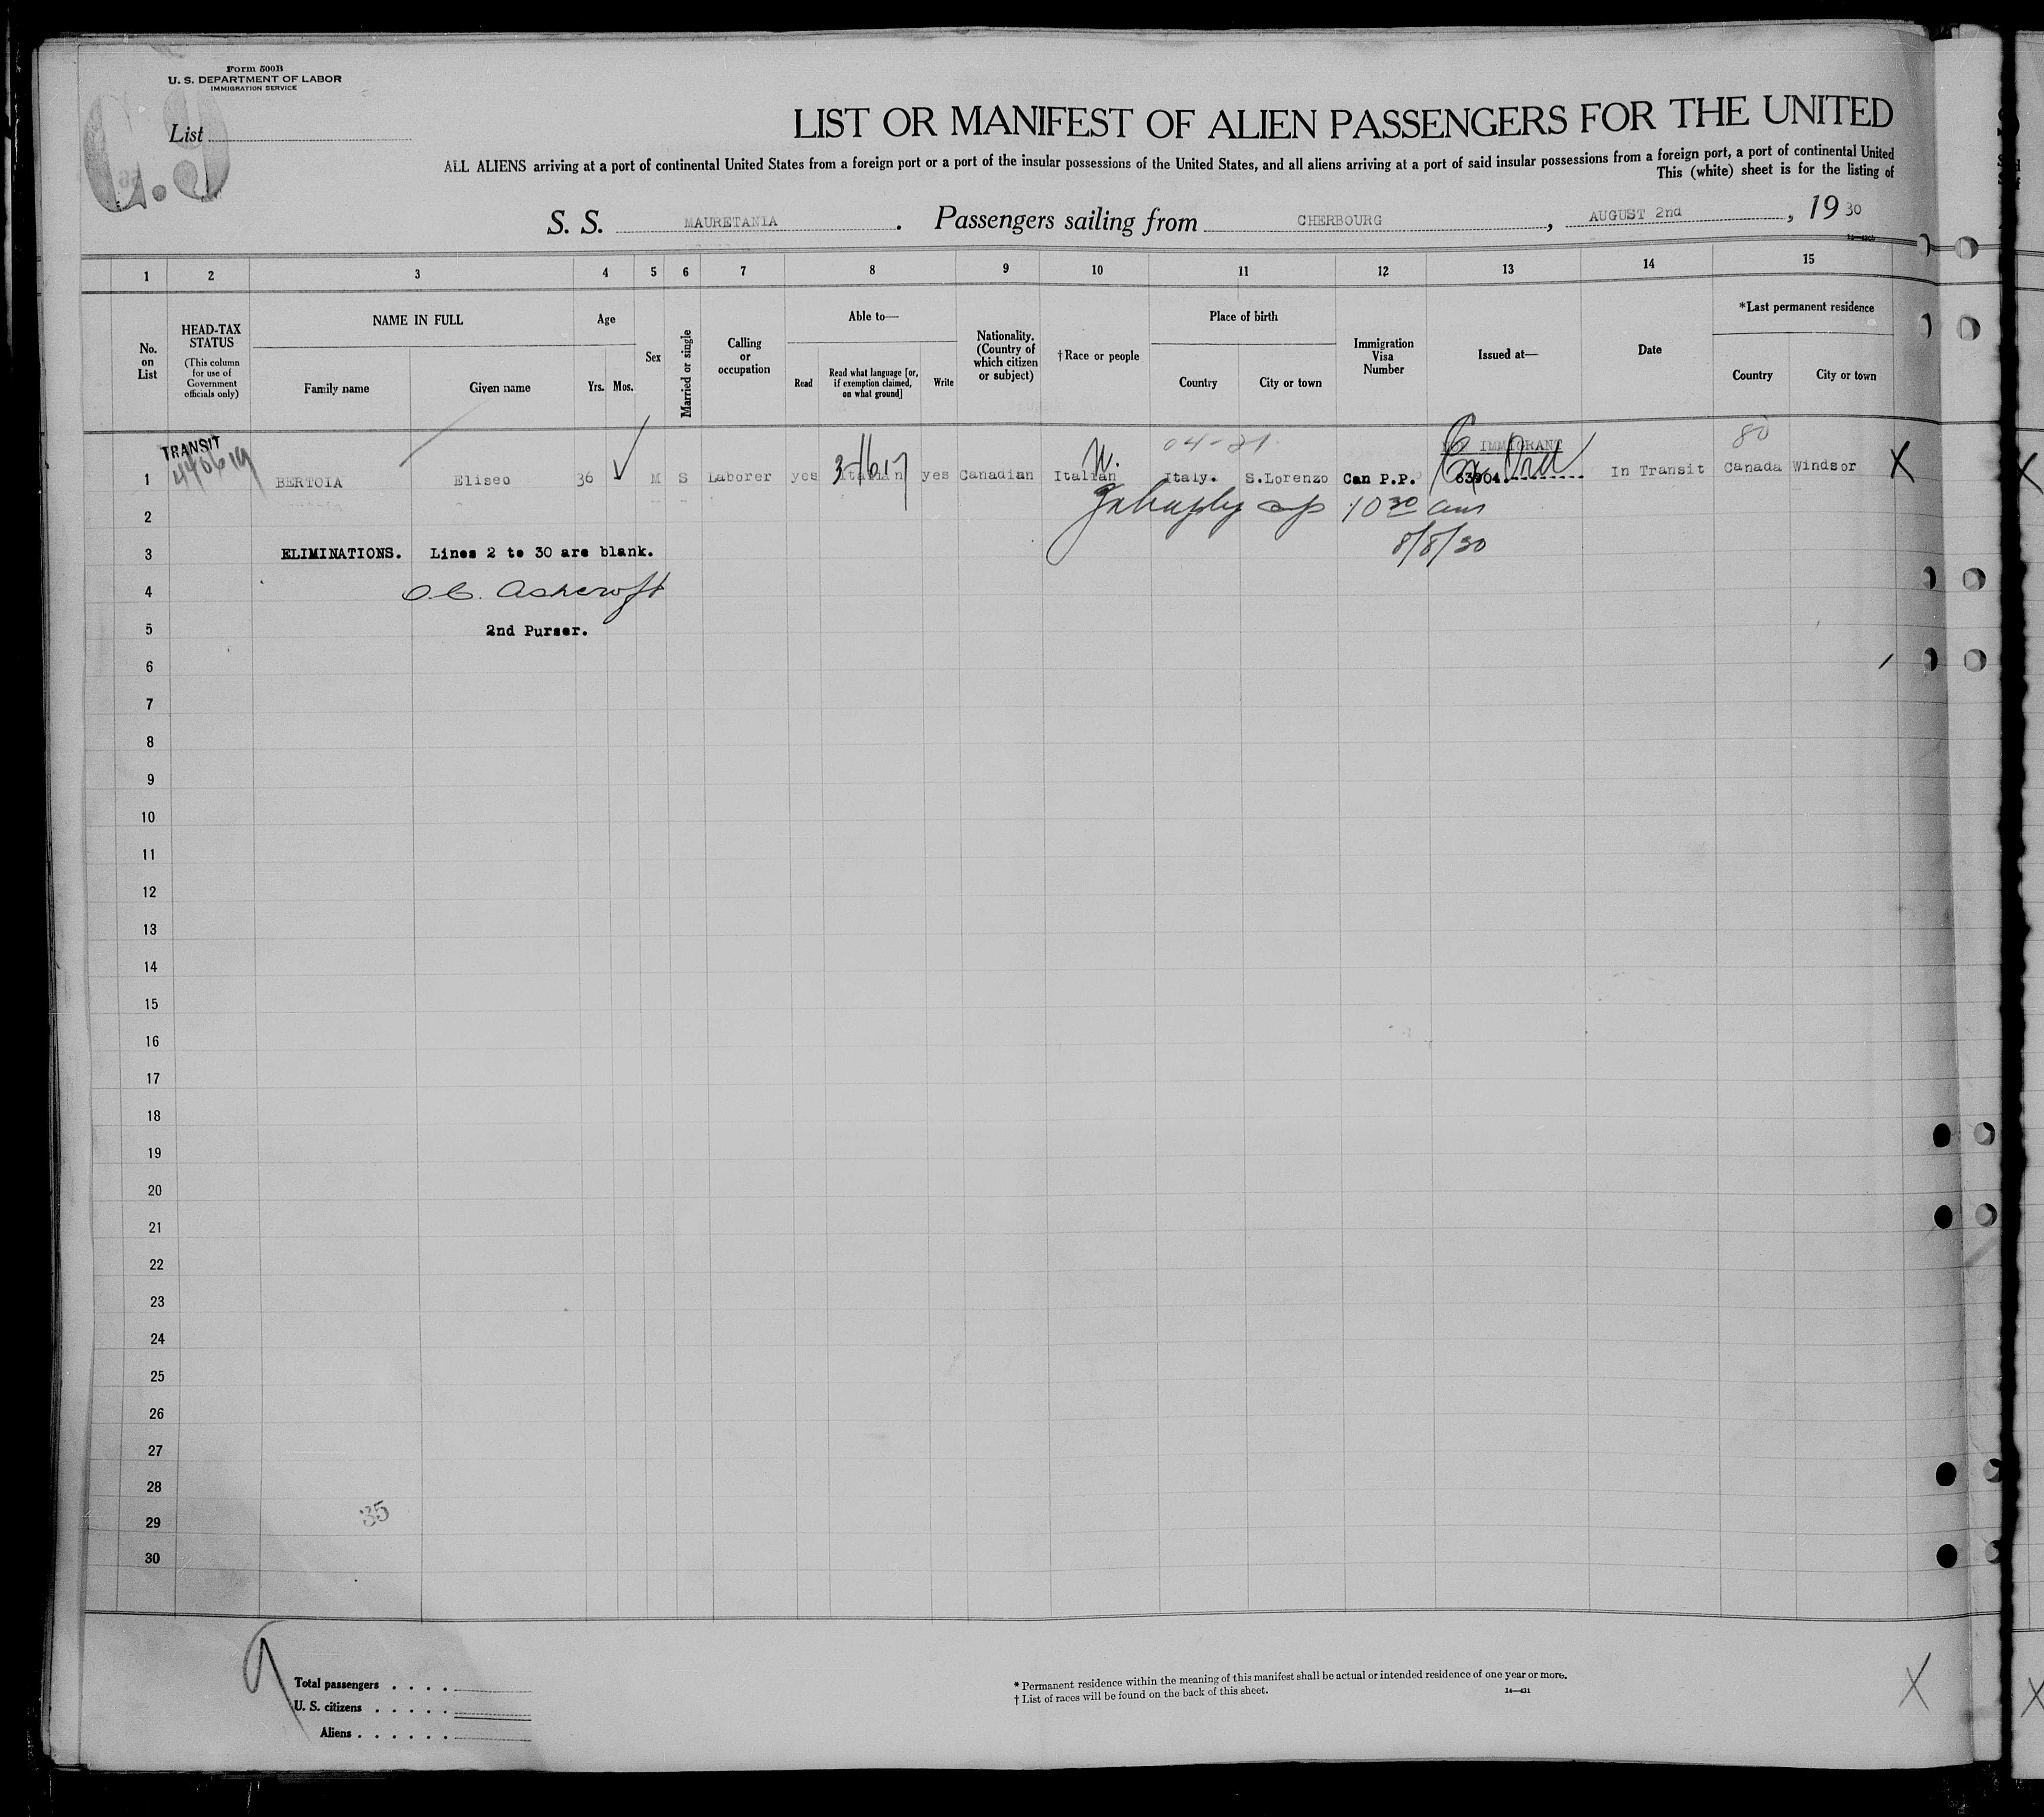 Form 500B
U. S. DEPARTMENT OF LABOR
IMMIGRATION SERVICE
List
LIST OR MANIFEST OF ALIEN PASSENGERS FOR THE UNITED
ALL ALIENS arriving at a port of continental United States from a foreign port or a port of the insular possessions of the United States, and all aliens arriving at a port of said insular possessions from a foreign port, a port of continental United
This (white) sheet is for the listing of
S. S. MAURETANIA . Passengers sailing from CHERBOURG , AUGUST 2nd , 19 30
1 2 3 4 5 6 7 8 9 10 11 12 13 14 15
No. on List
HEAD-TAX STATUS
(This column for use of Government officials only)
NAME IN FULL
Family name
Given name
Age
Yrs. Mos.
Sex
Married or single
Calling or occupation
Able to—
Read
Read what language [or, if exemption claimed, on what ground]
Write
Nationality. (Country of which citizen or subject)
†Race or people
Place of birth
Country
City or town
Immigration Visa Number
Issued at—
Date
*Last permanent residence
Country
City or town
TRANSIT
04-21 80
IMMIGRANT
1 BERTOIA Eliseo 36 M S Laborer yes Italian yes Canadian Italian Italy. S.Lorenzo Can P.P. In Transit Canada Windsor X
2 10 30 am
8/8/30
3 ELIMINATIONS. Lines 2 to 30 are blank.
4 Ashcroft
5 2nd Purser.
6
7
8
9
10
11
12
13
14
15
16
17
18
19
20
21
22
23
24
25
26
27
28
35
29
30
Total passengers . . . .
U. S. citizens . . . . .
Aliens . . . . . .
* Permanent residence within the meaning of this manifest shall be actual or intended residence of one year or more.
† List of races will be found on the back of this sheet.
14—431
X